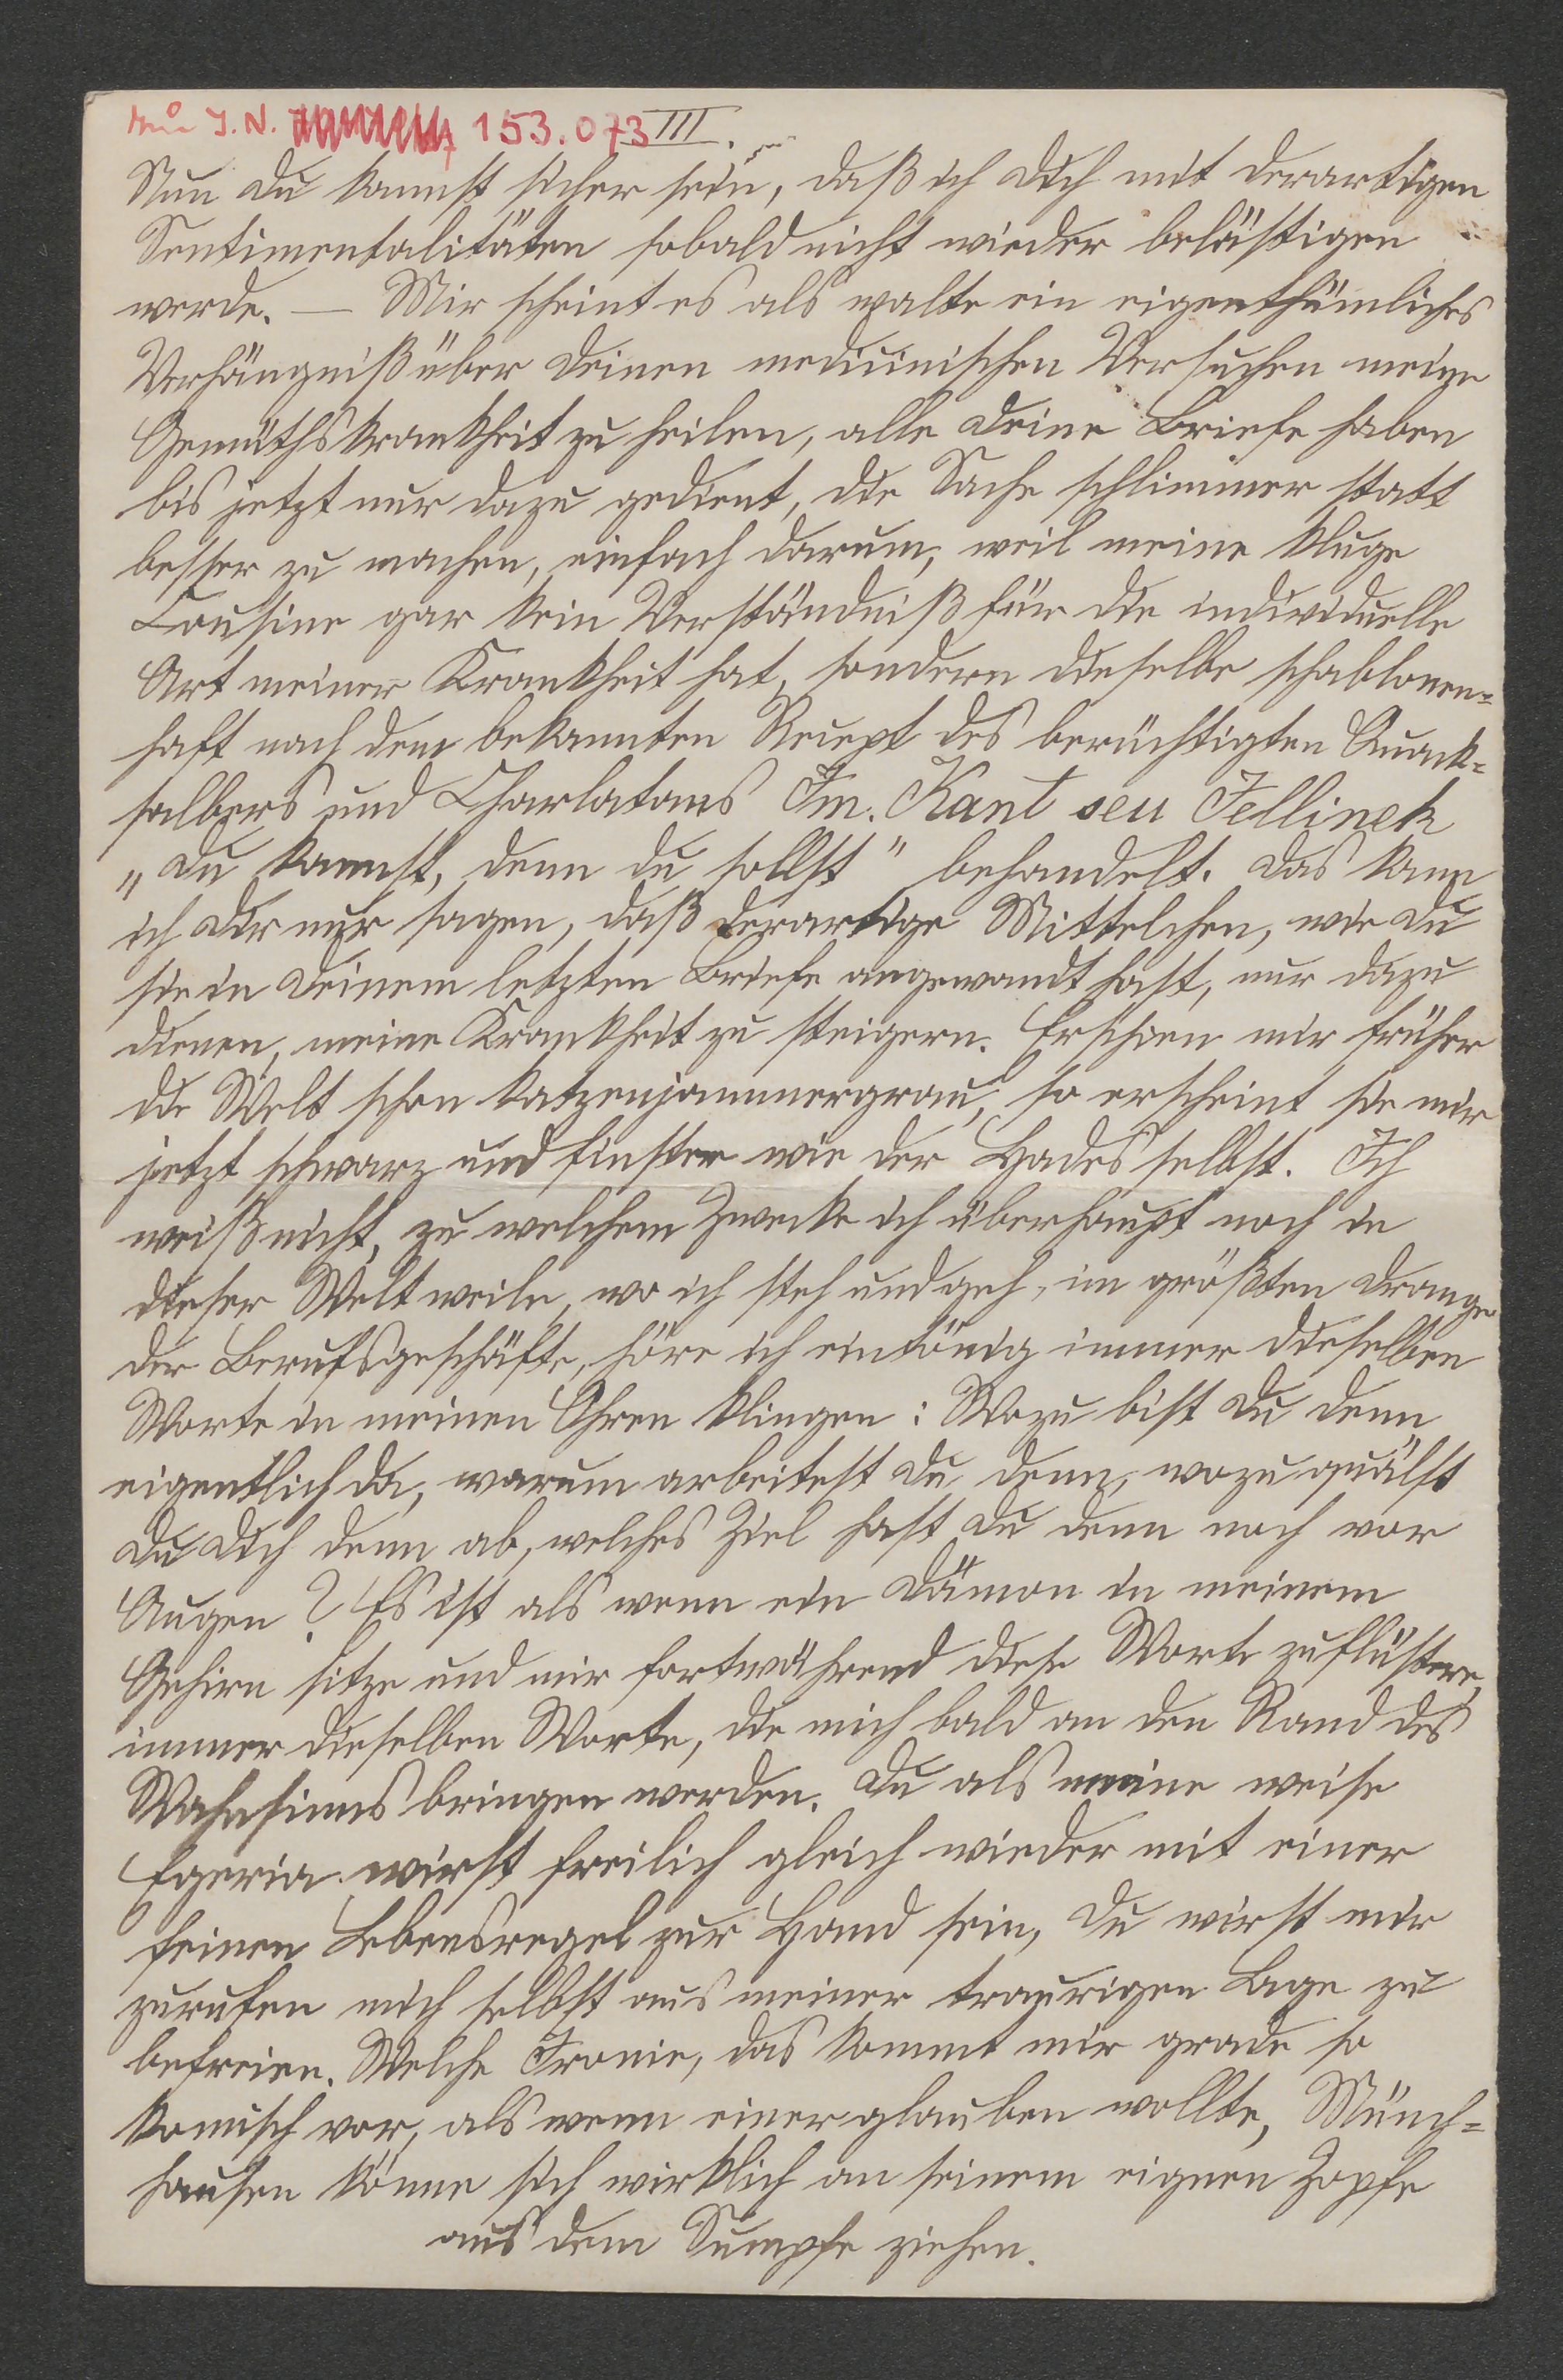 J. N. 153.073 III.
Nun Du kannst sicher sein, daß ich Dich mit derartigen
Sentimentalitäten sobald nicht wieder belästigen
werde. — Mir scheint es als walte ein eigenthümliches
Verhängniß über Deinen medicinischen Versuchen meine
Gemüthskrankheit zu heilen, alle Deine Briefe haben
bis jetzt nur dazu gedient, die Sache schlimmer statt
besser zu machen, einfach darum, weil meine kluge
Cousine gar kein Verständniß für die individuelle
Art meiner Krankheit hat, sondern dieselbe schablonen=
haft nach dem bekannten Recept des berüchtigten Quack=
salbers und Charlatans Im. Kant seu Jellinek
„Du kannst, denn du sollst" behandelt. Das kann
ich Dir nur sagen, daß derartige Mittelchen, wie Du
sie in Deinem letzten Briefe angewandt hast, nur dazu
dienen, meine Krankheit zu steigern. Erschien mir früher
die Welt schon katzenjammergrau, so erscheint sie mir
jetzt schwarz und finster wie der Hades selbst. Ich
weiß nicht, zu welchem Zwecke ich überhaupt noch in
dieser Welt weile, wo ich steh und geh, im größten Drange
der Berufsgeschäfte, höre ich eintönig immer dieselben
Worte in meinen Ohren klingen: Wozu bist Du denn
eigentlich da, warum arbeitest Du denn, wozu quälst
Du Dich denn ab, welches Ziel hast Du denn noch vor
Augen? Es ist als wenn ein Dämon in meinem
Gehirn sitze und mir fortwährend diese Worte zuflüstere,
immer dieselben Worte, die mich bald an den Rand des
Wahnsinns bringen werden. Du als meine weise
Egeria wirst freilich gleich wieder mit einer
feinen Lebensregel zur Hand sein, Du wirst mir
zurufen mich selbst aus meiner traurigen Lage zu
befreien. Welche Ironie, das kommt mir grade so
komisch vor, als wenn einer glauben wollte, Münch=
hausen könne sich wirklich an seinem eignen Zopfe
aus dem Sumpfe ziehen.